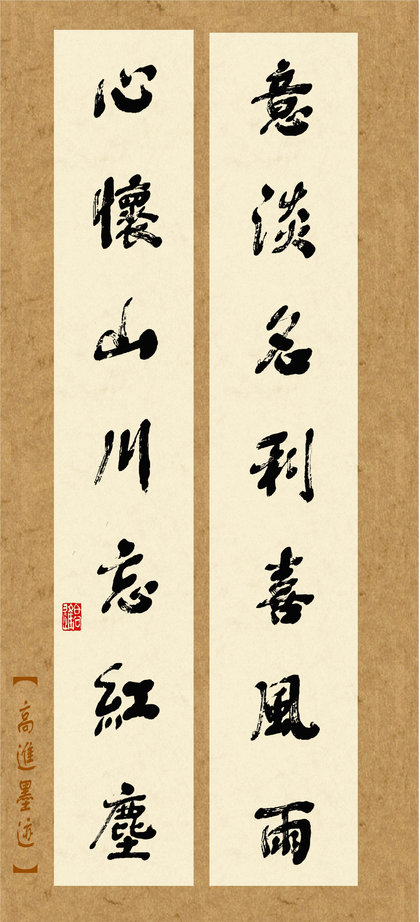 意淡名利喜風雨
心懷山川忘紅塵
【高進墨迹】